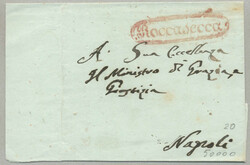 Roccasecca
A Sua Eccellenza
Il Ministro di Grazia, e
Giustizia
Napoli
20
50000